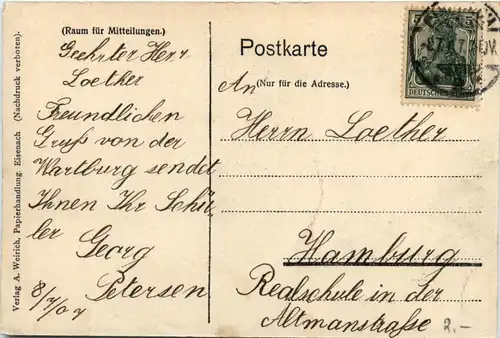 (Raum für Mitteilungen.)
Geehrter Herr
Loether
Freundlichen
Gruß von der
Wartburg sendet
Ihnen Ihr Schü-
ler
Georg
Petersen
8/7/07
Postkarte
(Nur für die Adresse.)
An
Herrn Loether
Hamburg
Realschule in der
Altmanstraße
2.-
5
DEUTSCHES REICH
Verlag A. Weirich, Papierhandlung, Eisenach (Nachdruck verboten).